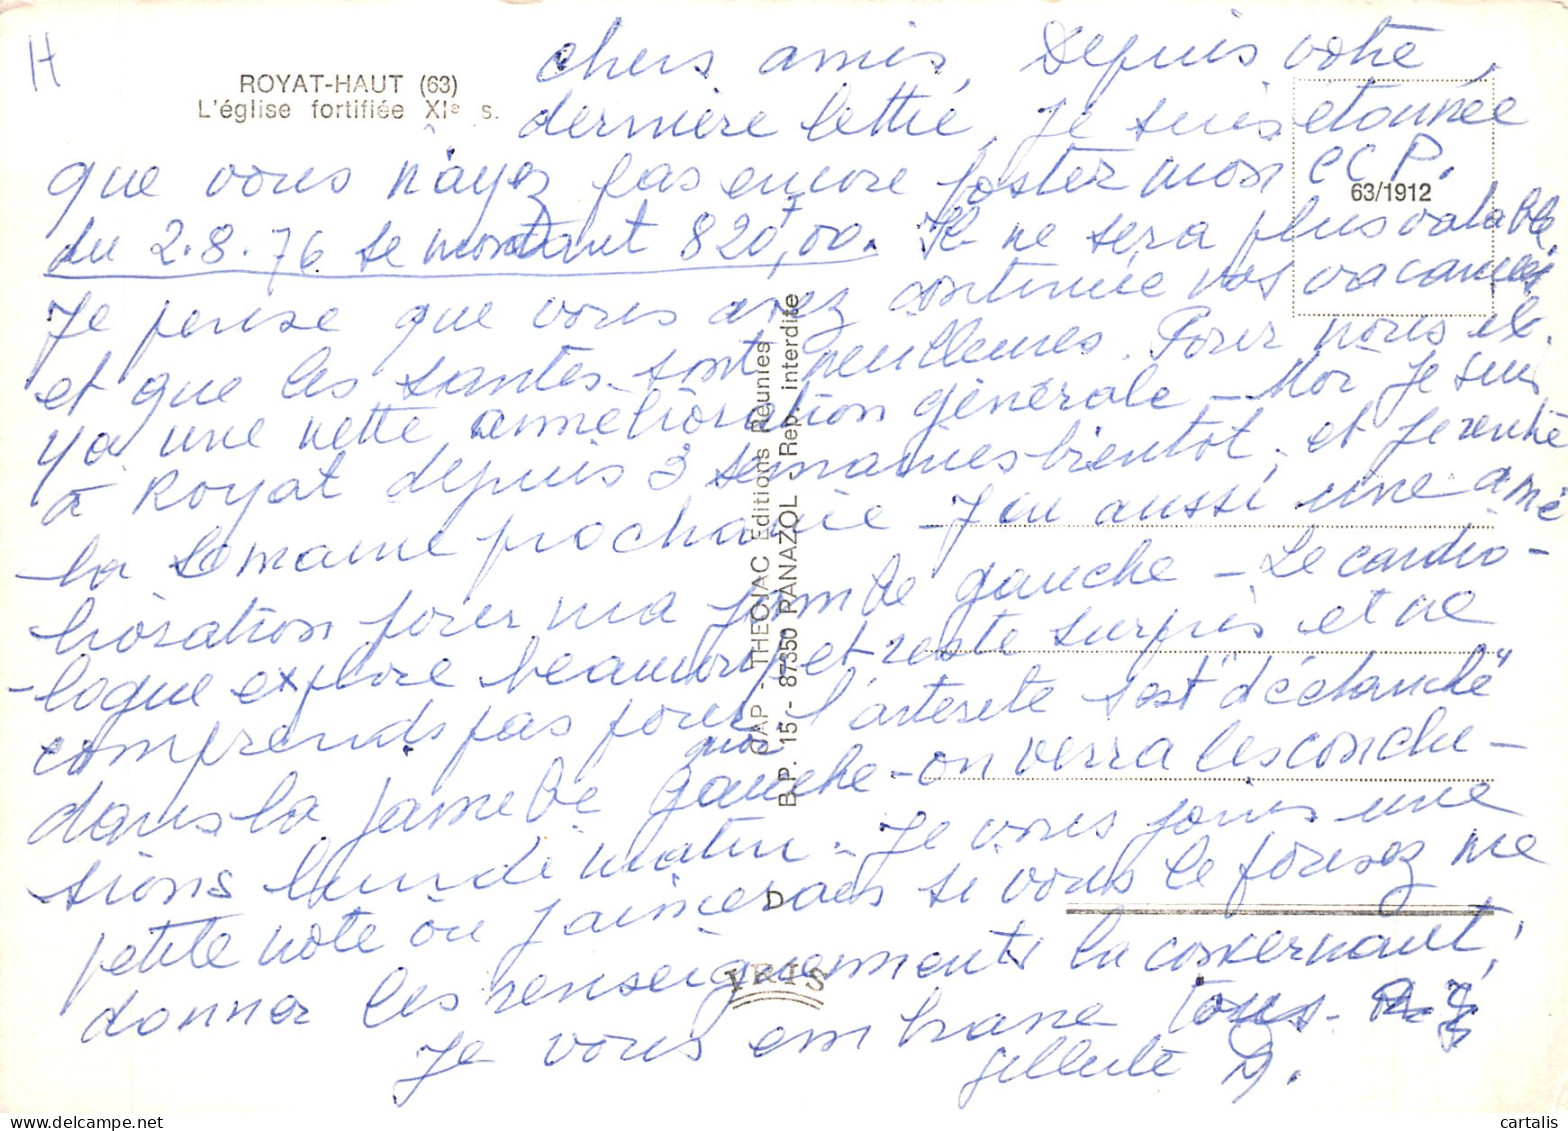 H
ROYAT-HAUT (63)
L'église fortifiée XIe s.
chers amis, Depuis votre
dernière lettre, je suis étonnée
que vous n'ayez pas encore poster mon CCP.
63/1912
du 2.8.76 se montant 820F,00. Il ne sera plus valable.
Je pense que vous avez continué vos vacances
et que les santés sont meilleures. Pour nous il
ya une nette amélioration générale - Moi je suis
à Royat depuis 3 semaines bientôt. et je rentre
la semaine prochaine - J'ai aussi une amé
lioration pour ma jambe gauche - Le cardio-
-logue explore beaucoup et reste surpris et ne
comprends pas pour l'artère s'est "déclanché"
dans la jambe gauche - on verra les conclu-
sions lundi matin - Je vous joins une
petite note où j'aimerais si vous le pouvez me
donner les renseignements la concernant,
Je vous embrasse tous.
D.
CAP - THEOJAC Editions Réunies
B.P. 15 - 87350 PANAZOL - Rep. interdite
D
IRIS
cartalis